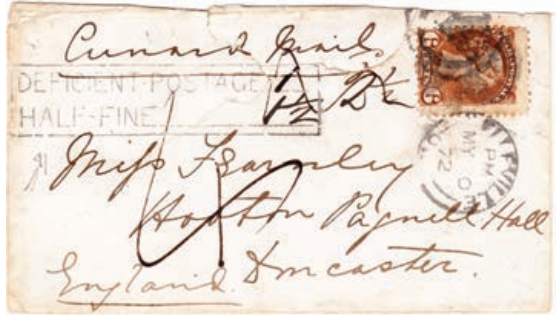 Cunard Mail
DEFICIENT POSTAGE
HALF-FINE
Miss Fearnley
Hooton Pagnell Hall
England. Doncaster.
PM
MY 0
72